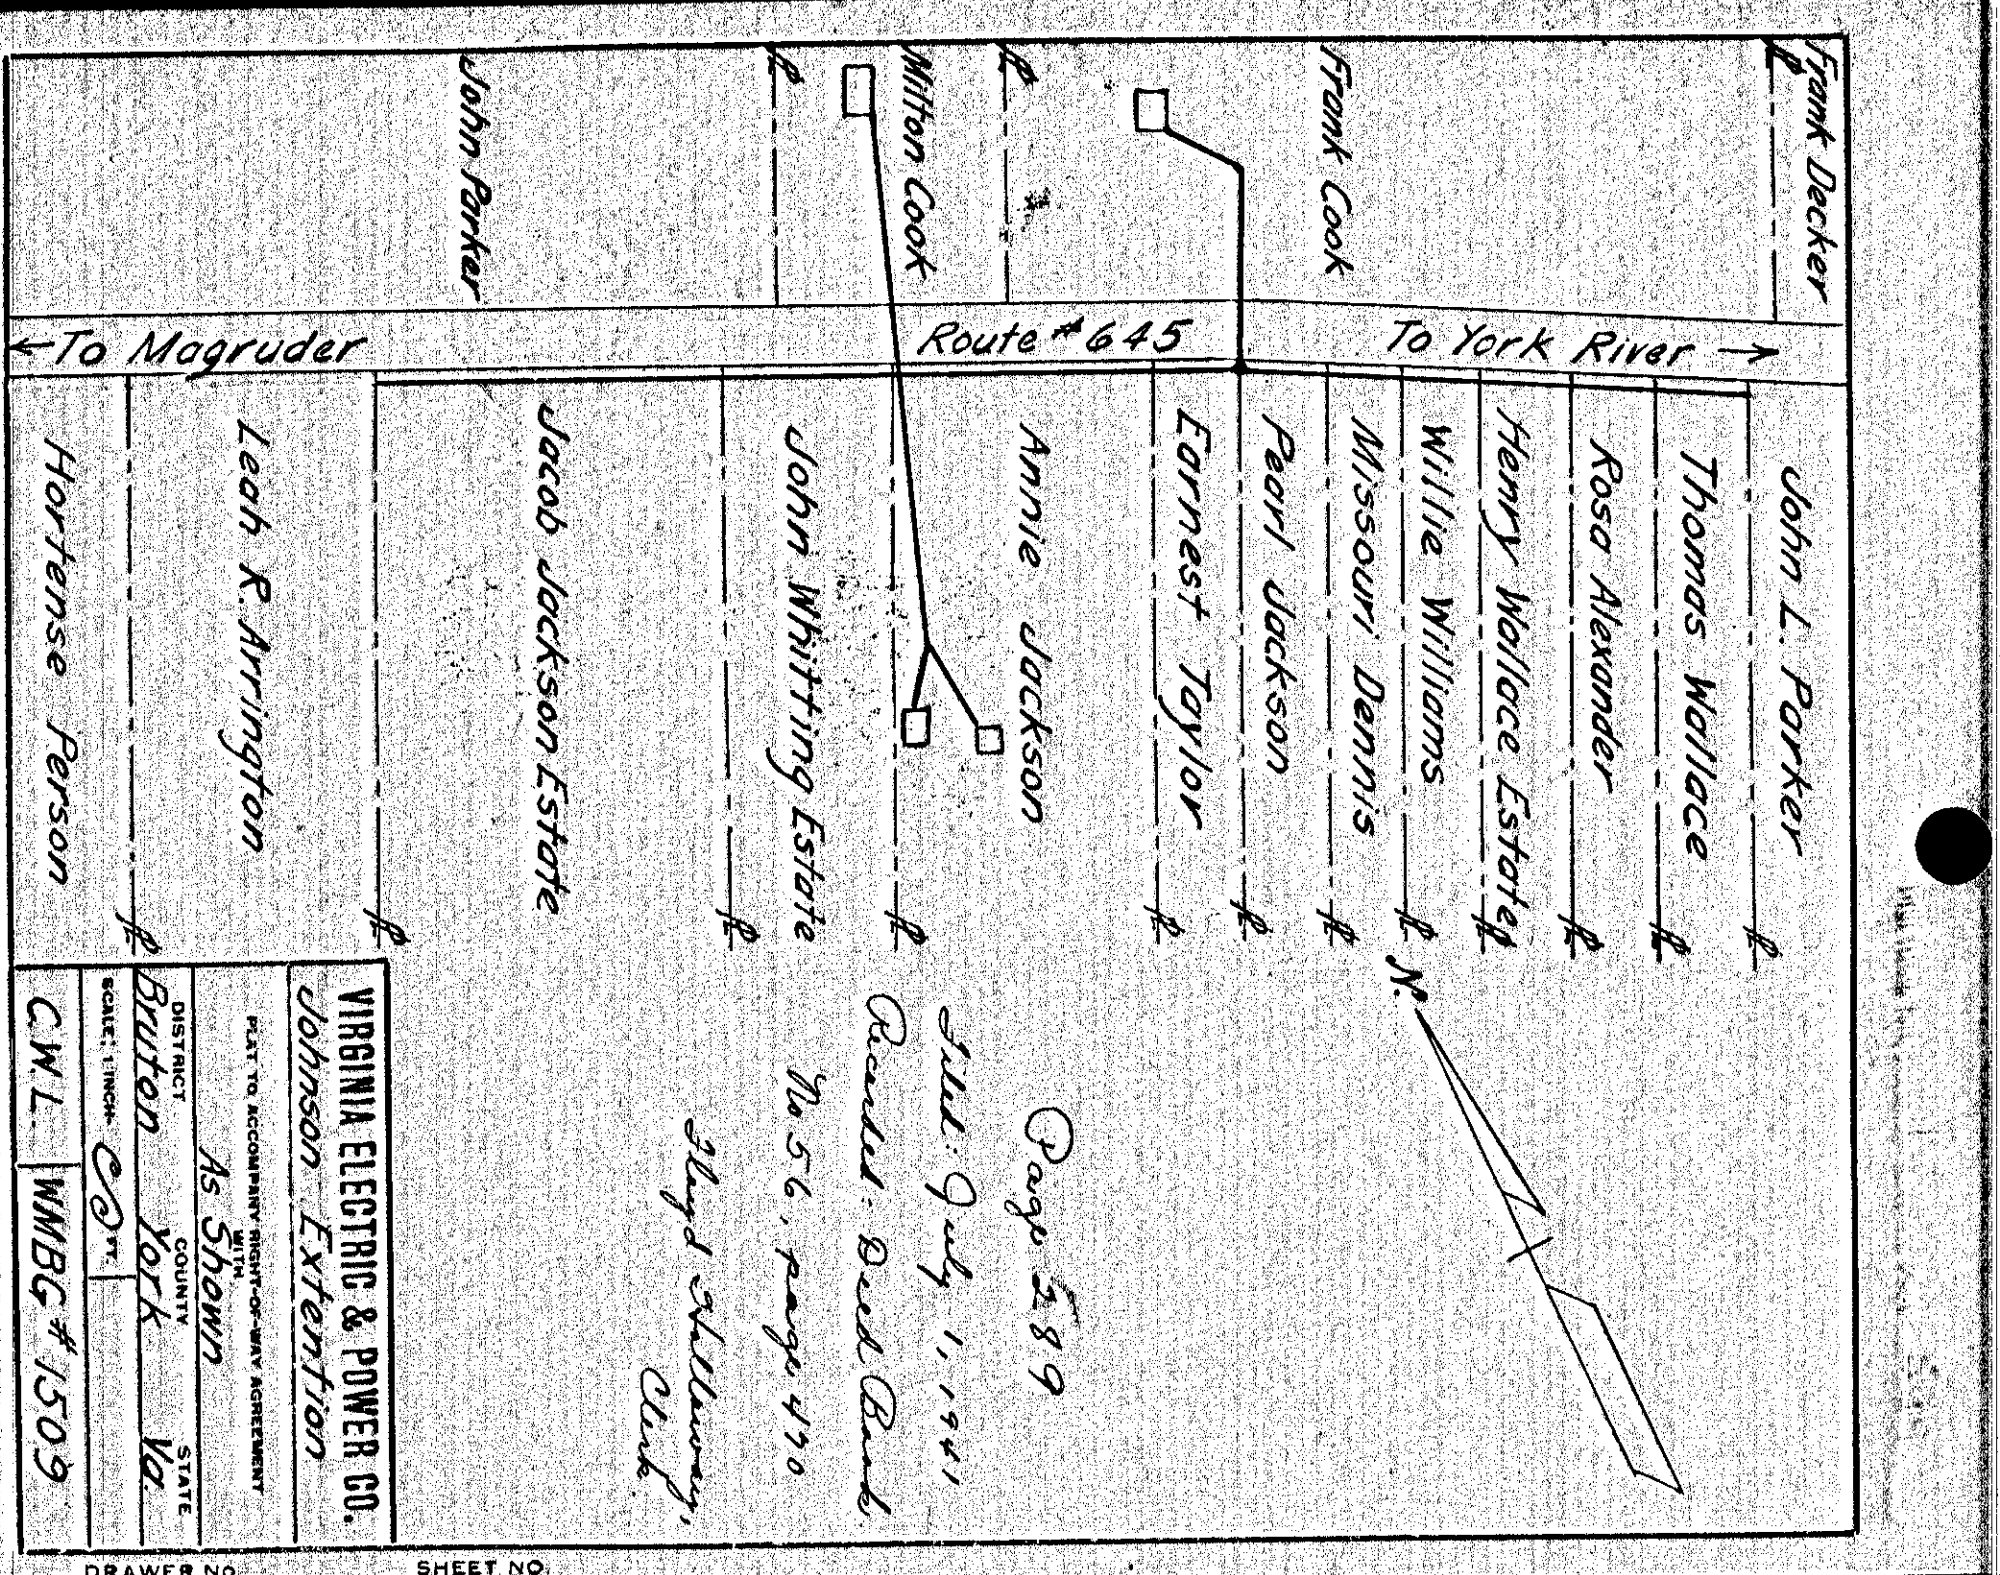 Frank Decker
Frank Cook
Milton Cook
John Parker
← To Magruder
Route #645
To York River →
John L. Parker
Thomas Wallace
Rosa Alexander
Henry Wallace Estate
Willie Williams
Missouri Dennis
Pearl Jackson
Earnest Taylor
Annie Jackson
John Whitting Estate
Jacob Jackson Estate
Leah R. Arrington
Hortense Person
N.
Page 289
Filed: July 1, 1941
Recorded: Deed Book
No 56, page 470
Floyd Holloway,
Clerk.
VIRGINIA ELECTRIC & POWER CO.
Johnson Extention
PLAT TO ACCOMPANY RIGHT-OF-WAY AGREEMENT
WITH
As Shown
DISTRICT COUNTY STATE
Bruton York Va.
SCALE: 1 INCH= FT.
C.W.L. WMBG #1509
DRAWER NO.
SHEET NO.